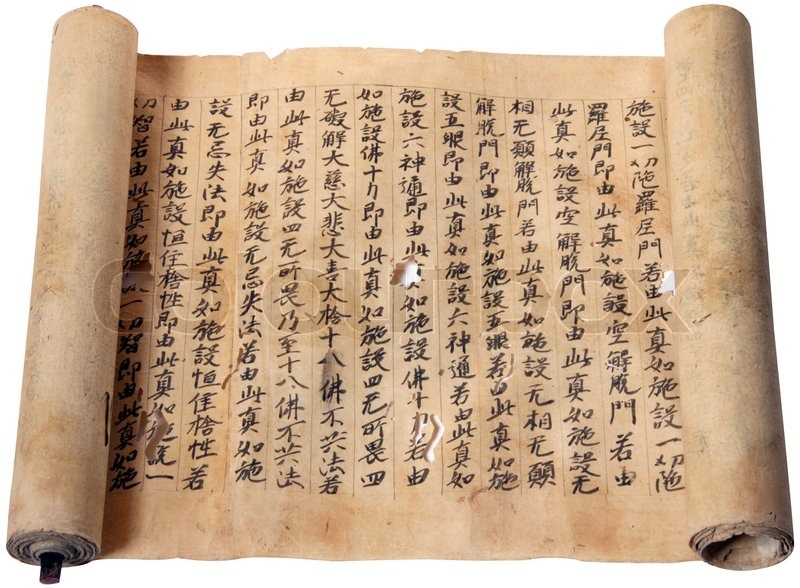 施設一切陁羅尼門若由此真如施設一切陁
羅尼門即由此真如施設空解脫門若由
此真如施設空解脫門即由此真如施設无
相无願解脫門若由此真如施設无相无願
解脫門即由此真如施設五眼若由此真如施
設五眼即由此真如施設六神通若由此真如
施設六神通即由此如施設佛十力若由
如施設佛十力即由此真如施設四无所畏四
无礙解大慈大悲大喜大捨十八佛不共法若
由此真如施設四无所畏乃至十八佛不共法
即由此真如施設无忘失法若由此真如施
設无忘失法即由此真如施設恒住捨性若
由此真如施設恒住捨性即由此真如施設一
切智若由此真如施設一切智即由此真如施